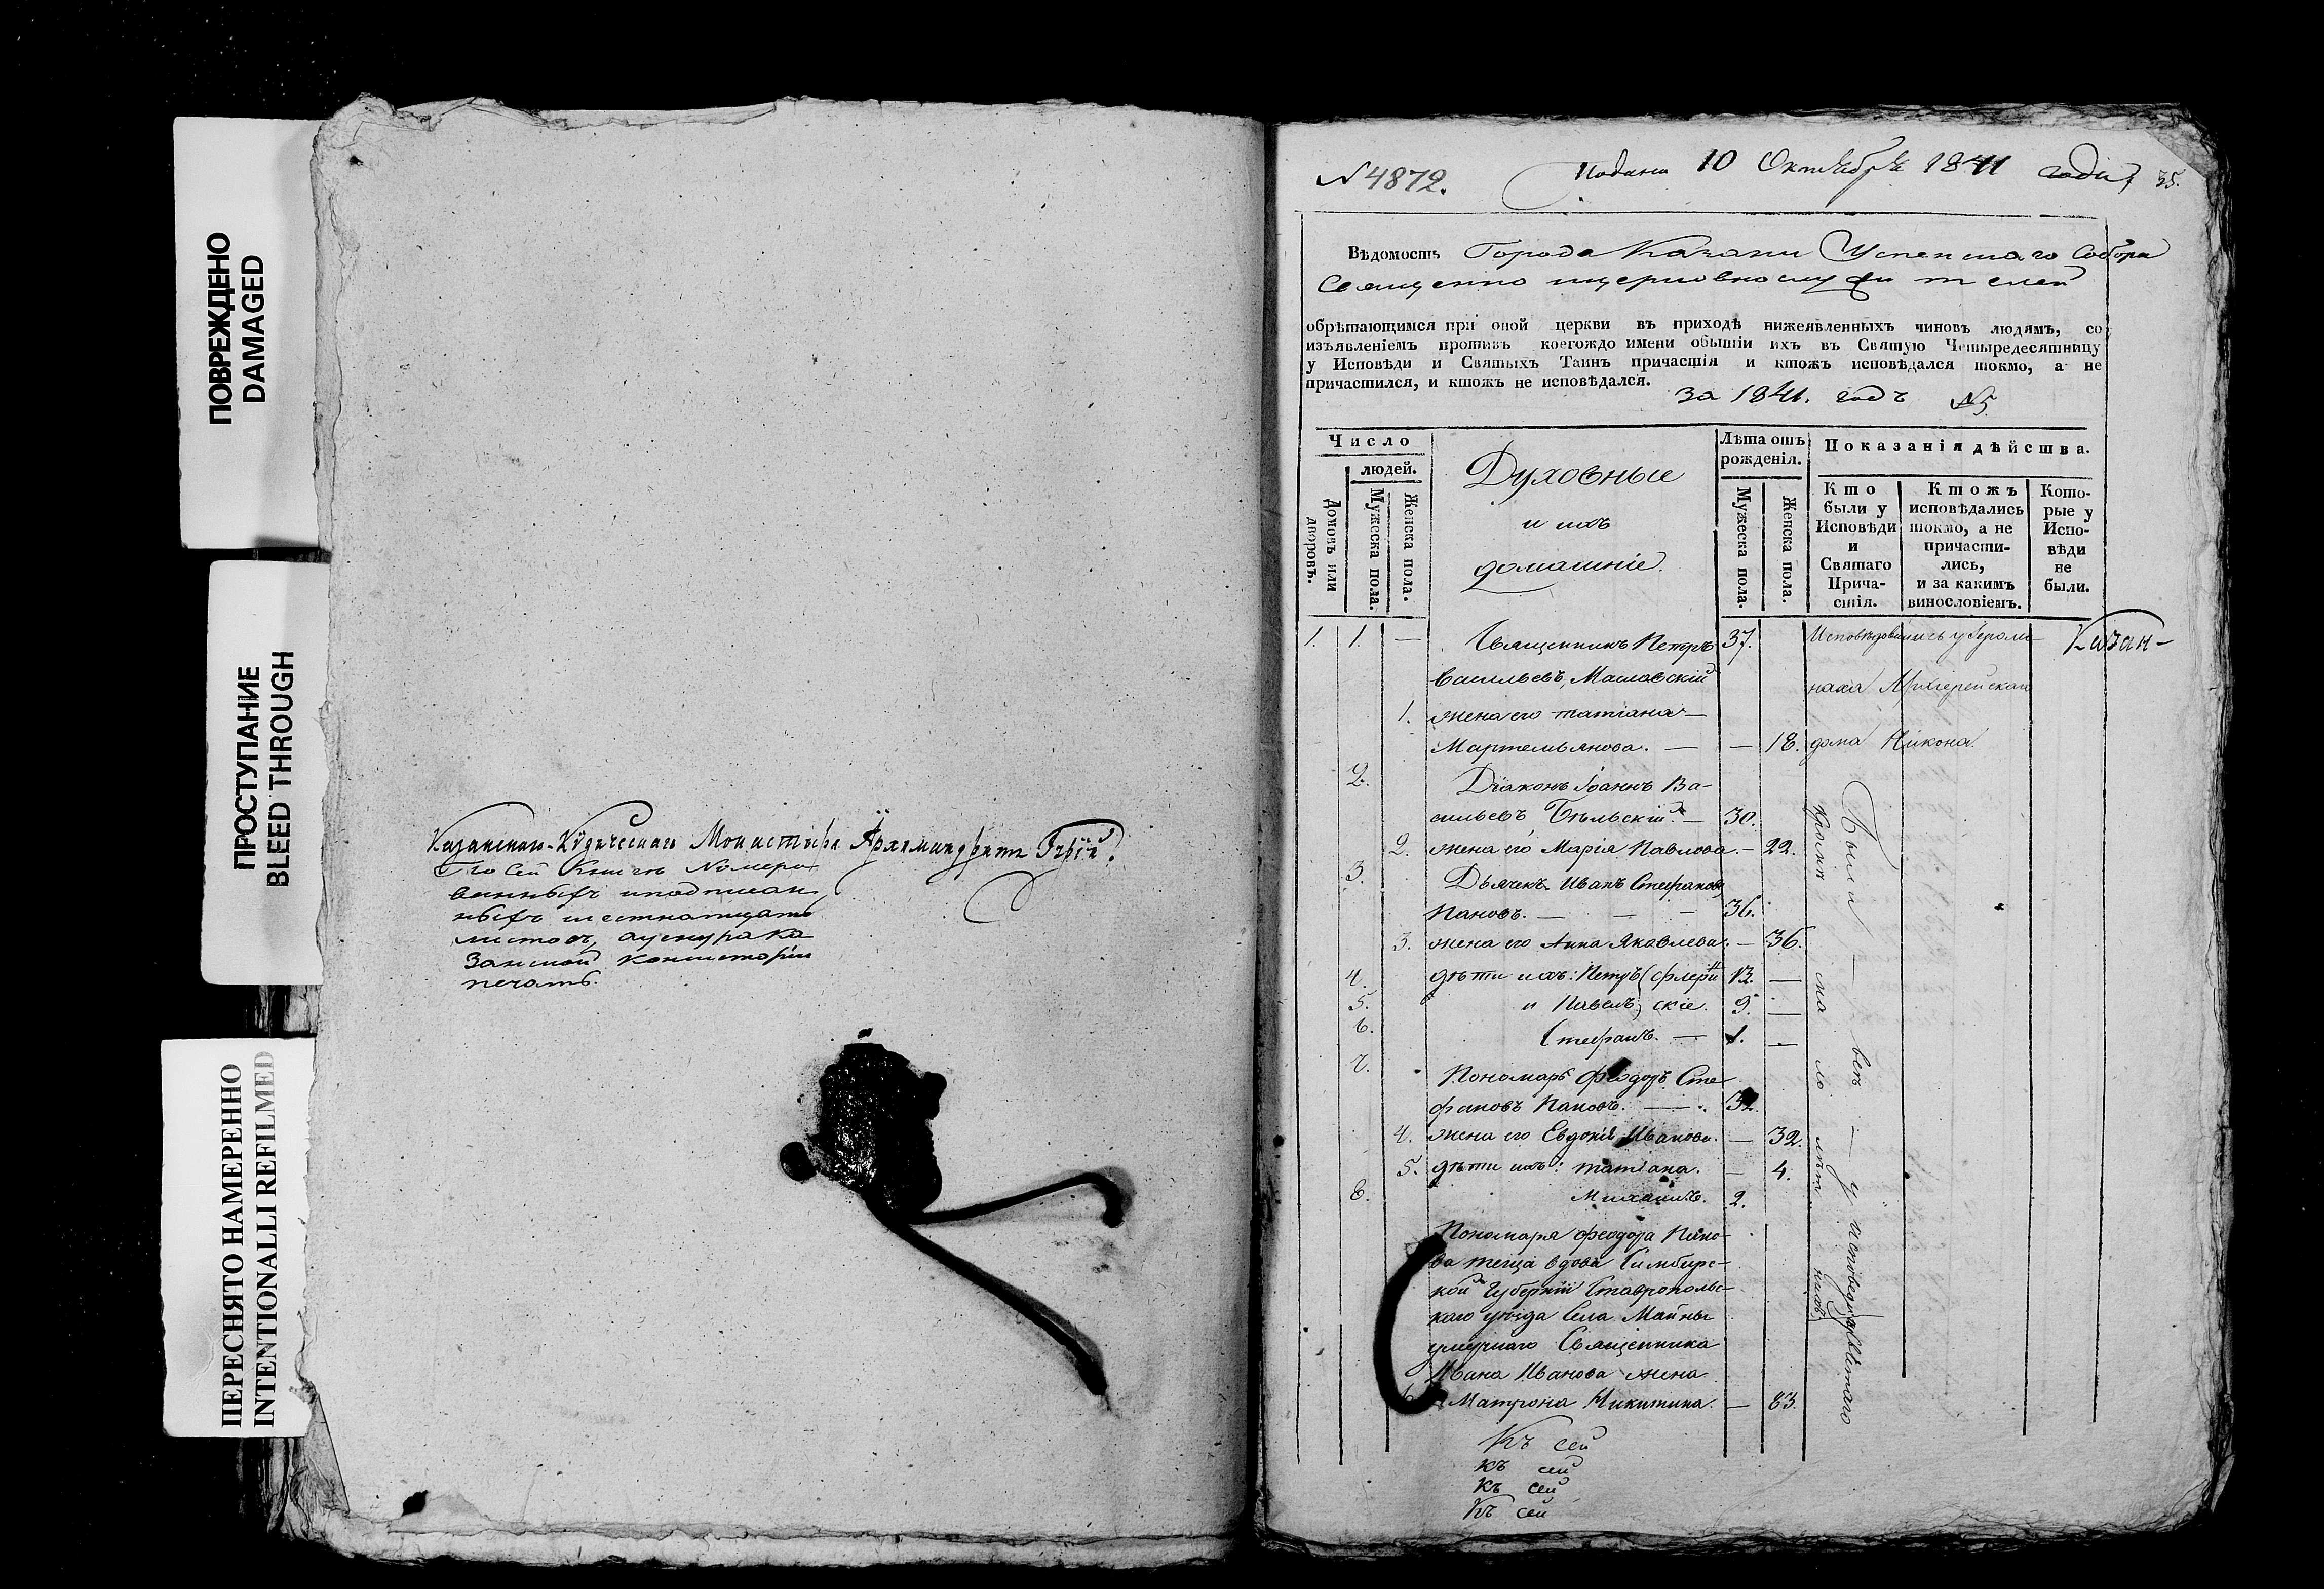 ПОВРЕЖДЕНО
DAMAGED
ПРОСТУПАНИЕ
BLEED THROUGH
ПЕРЕСНЯТО НАМЕРЕННО
INTENTIONALLI REFILMED
Казанскаго-Кизическаго Монастыря Архимандритъ Гурій.
Въ сей книгѣ Нумеро-
ванныхъ и подписан
ныхъ шестнатцать
листовъ, а у снурака
Занской консисторіи
печать.
№ 4872. Подана 10 Октября 1841 года 35.
Вѣдомость Города Казани Успенскаго Собора
Священно ицерковнослужителей
обрѣтающимся при оной церкви въ приходѣ нижеявленныхъ чиновъ людямъ, со
изъявленіемъ противъ коегождо имени обытіи ихъ въ Святую Четыредесятницу
у Исповѣди и Святыхъ Таинъ причастія и ктожъ исповѣдался токмо, а не
причастился, и ктожъ не исповѣдался.
за 1841. годъ №5.
Число
людей.
Домовъ или дворовъ.
Мужеска пола.
Женска пола.
Духовные
и ихъ
домашніе.
Лѣта отъ
рожденія.
Мужеска пола.
Женска пола.
Показанія дѣйства.
Кто
были у
Исповѣди
и
Святаго
Прича-
стія.
Ктожъ
исповѣдались
токмо, а не
причасти-
лись,
и за какимъ
винословіемъ.
Кото-
рые у
Испо-
вѣди
не
были.
1. 1. — Священникъ Петръ 37. Исповѣдовались у Іеромо- Казан-
Васильевъ Масловскій наха Архіерейскаго
1. жена его татіана —
Мартемьянова. — — 18. дома Никона.
2. Діаконъ Іоаннъ Ва-
сильевъ Бѣльскій. — 30.
2. жена его Марія Павлова. — 22.
3. Дьячекъ Иванъ Стефановъ
Пановъ. — — — 36.
3. жена его Анна Яковлева. — 36.
4. дѣти ихъ: Петръ 13. —
5. и Павелъ скіе. 9. —
6. Стефанъ. — 1. —
7. Пономарь Феодоръ Сте-
фановъ Пановъ. — 32.
4. жена его Евдокія Иванова. — 32.
5. дѣти ихъ: татіана. — 4.
8. Михаилъ. 2.
Пономаря Феодора Пано-
ва теща вдова Симбирс-
кой Губерніи Ставрополь-
каго уѣзда Села Майны
умершаго Священника
Ивана Иванова жена
Матрона Никитина. — 83.
Были — всѣ — у исповеди и святаго
кромѣ ма ло лѣт нихъ
Къ сей
къ сей
къ сей
Къ сей